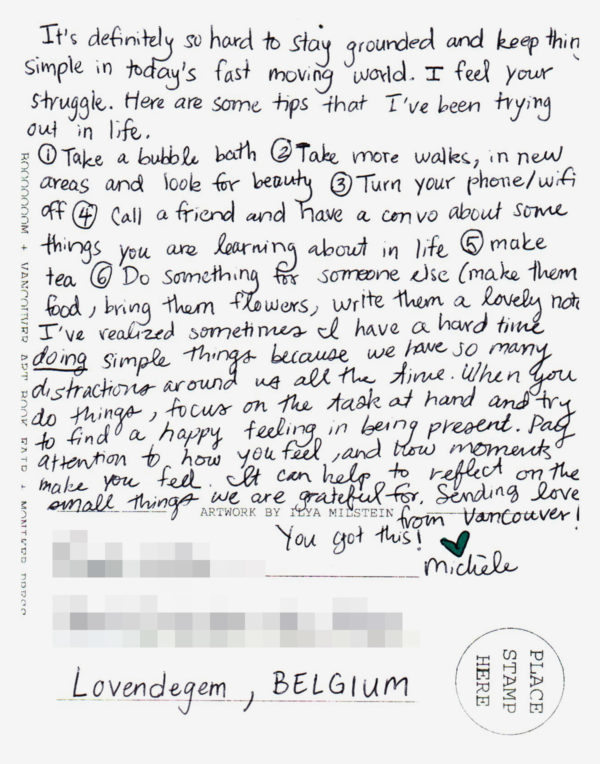 It's definitely so hard to stay grounded and keep thin
simple in today's fast moving world. I feel your
struggle. Here are some tips that I've been trying
out in life.
① Take a bubble bath ② Take more walks, in new
areas and look for beauty ③ Turn your phone/wifi
off ④ Call a friend and have a convo about some
things you are learning about in life ⑤ make
tea ⑥ Do something for someone else (make them
food, bring them flowers, write them a lovely not
I've realized sometimes I have a hard time
doing simple things because we have so many
distractions around us all the time. When you
do things, focus on the task at hand and try
to find a happy feeling in being present. Pay
attention to how you feel, and how moments
make you feel. It can help to reflect on the
small things we are grateful for. Sending love
from Vancouver!
You got this!
Michèle
ARTWORK BY ILYA MILSTEIN
Lovendegem, BELGIUM
PLACE
STAMP
HERE
VANCOUVER ART BOOK FAIR + MONIKER PRESS